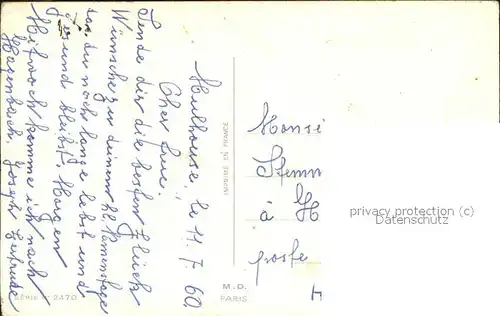 Mulhouse, le 11. 7. 60.
Cher
Sende dir die besten Glück
Wünsche zu deinem hl. Namenstage
das du noch lange lebst und
gesund bleibst. Morgen
Mitwoch komme ich nach
Hagenbach. Joseph Gertrude
IMPRIMÉ EN FRANCE
M. D.
PARIS
SÉRIE N° 2470
Monsi
à H
poste
privacy protection (c)
Datenschutz